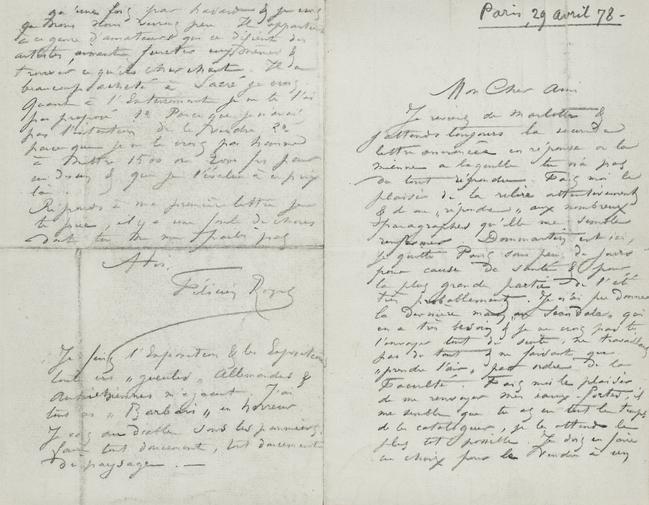 Paris, 29 avril 78 -
Mon Cher Ami
Je reviens de Marlotte &
j'attends toujours la seconde
lettre annoncée en réponse à la
mienne à laquelle tu n'as pas
du tout répondu. Fais moi le
plaisir de la relire attentivement
& de me "répondre" aux nombreux
paragraphes qu'elle me semble
renfermer. Dommartin est ici,
je quitte Paris sous peu de jours
pour cause de santé & pour
la plus grande partie de l'été
très probablement. Je n'ai pu donner
la dernière main au Scandale qui
en a très besoin & je ne crois pas te
l'envoyer tout de suite, ne travaillant
pas du tout & ne faisant que
"prendre l'air" par ordre de la
Faculté. Fais moi le plaisir
de me renvoyer mes eaux-fortes, il
me semble que tu as eu tout le temps
de les cataloguer, je les attends le
plus tôt possible. Je dois en faire
un choix pour les vendre à un
qu'une fois par hasard & je crois
que nous nous verrons peu. Il appartient
à ce genre d'amateurs qui se défient des
artistes, aiment fureter eux-mêmes &
trouver ce qu'ils cherchent. Il a
beaucoup acheté à Sacré je crois.
Quant à l'Enterrement je ne le lui ai
pas proposé 1° Parce que je n'avais
pas l'intention de le vendre 2°
parce que je ne le crois pas homme
à mettre 1500 ou 2000 frs pour
un dessin & que je l'évalue à ce prix
là.
Réponds à ma première lettre je
te prie, il y a une foule de choses
dont tu ne me parles pas
A toi.
Félicien Rops
Je fuis l'Exposition & les Expositions
toutes ces "gueules" Allemandes &
Autrichiennes m'agacent. J'ai
tous ces "Barbares" en horreur
Je vais au diable sous les pommiers
faire tout doucement, tout doucement
du paysage. —